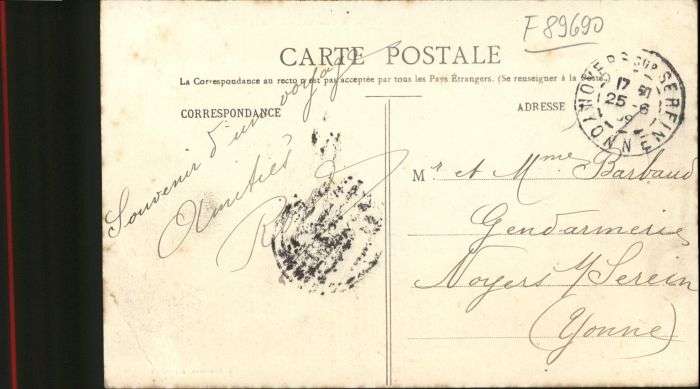 F 89690
CARTE POSTALE
La Correspondance au recto n'est pas acceptée par tous les Pays Étrangers. (Se renseigner à la Poste)
CORRESPONDANCE
ADRESSE
NOYERS SUR SEREIN
17
25 - 6
YONNE
Souvenir d'un voyage
Amitiés
Mr et Mme Barbaud
Gendarmerie
Noyers s/ Serein
(Yonne)